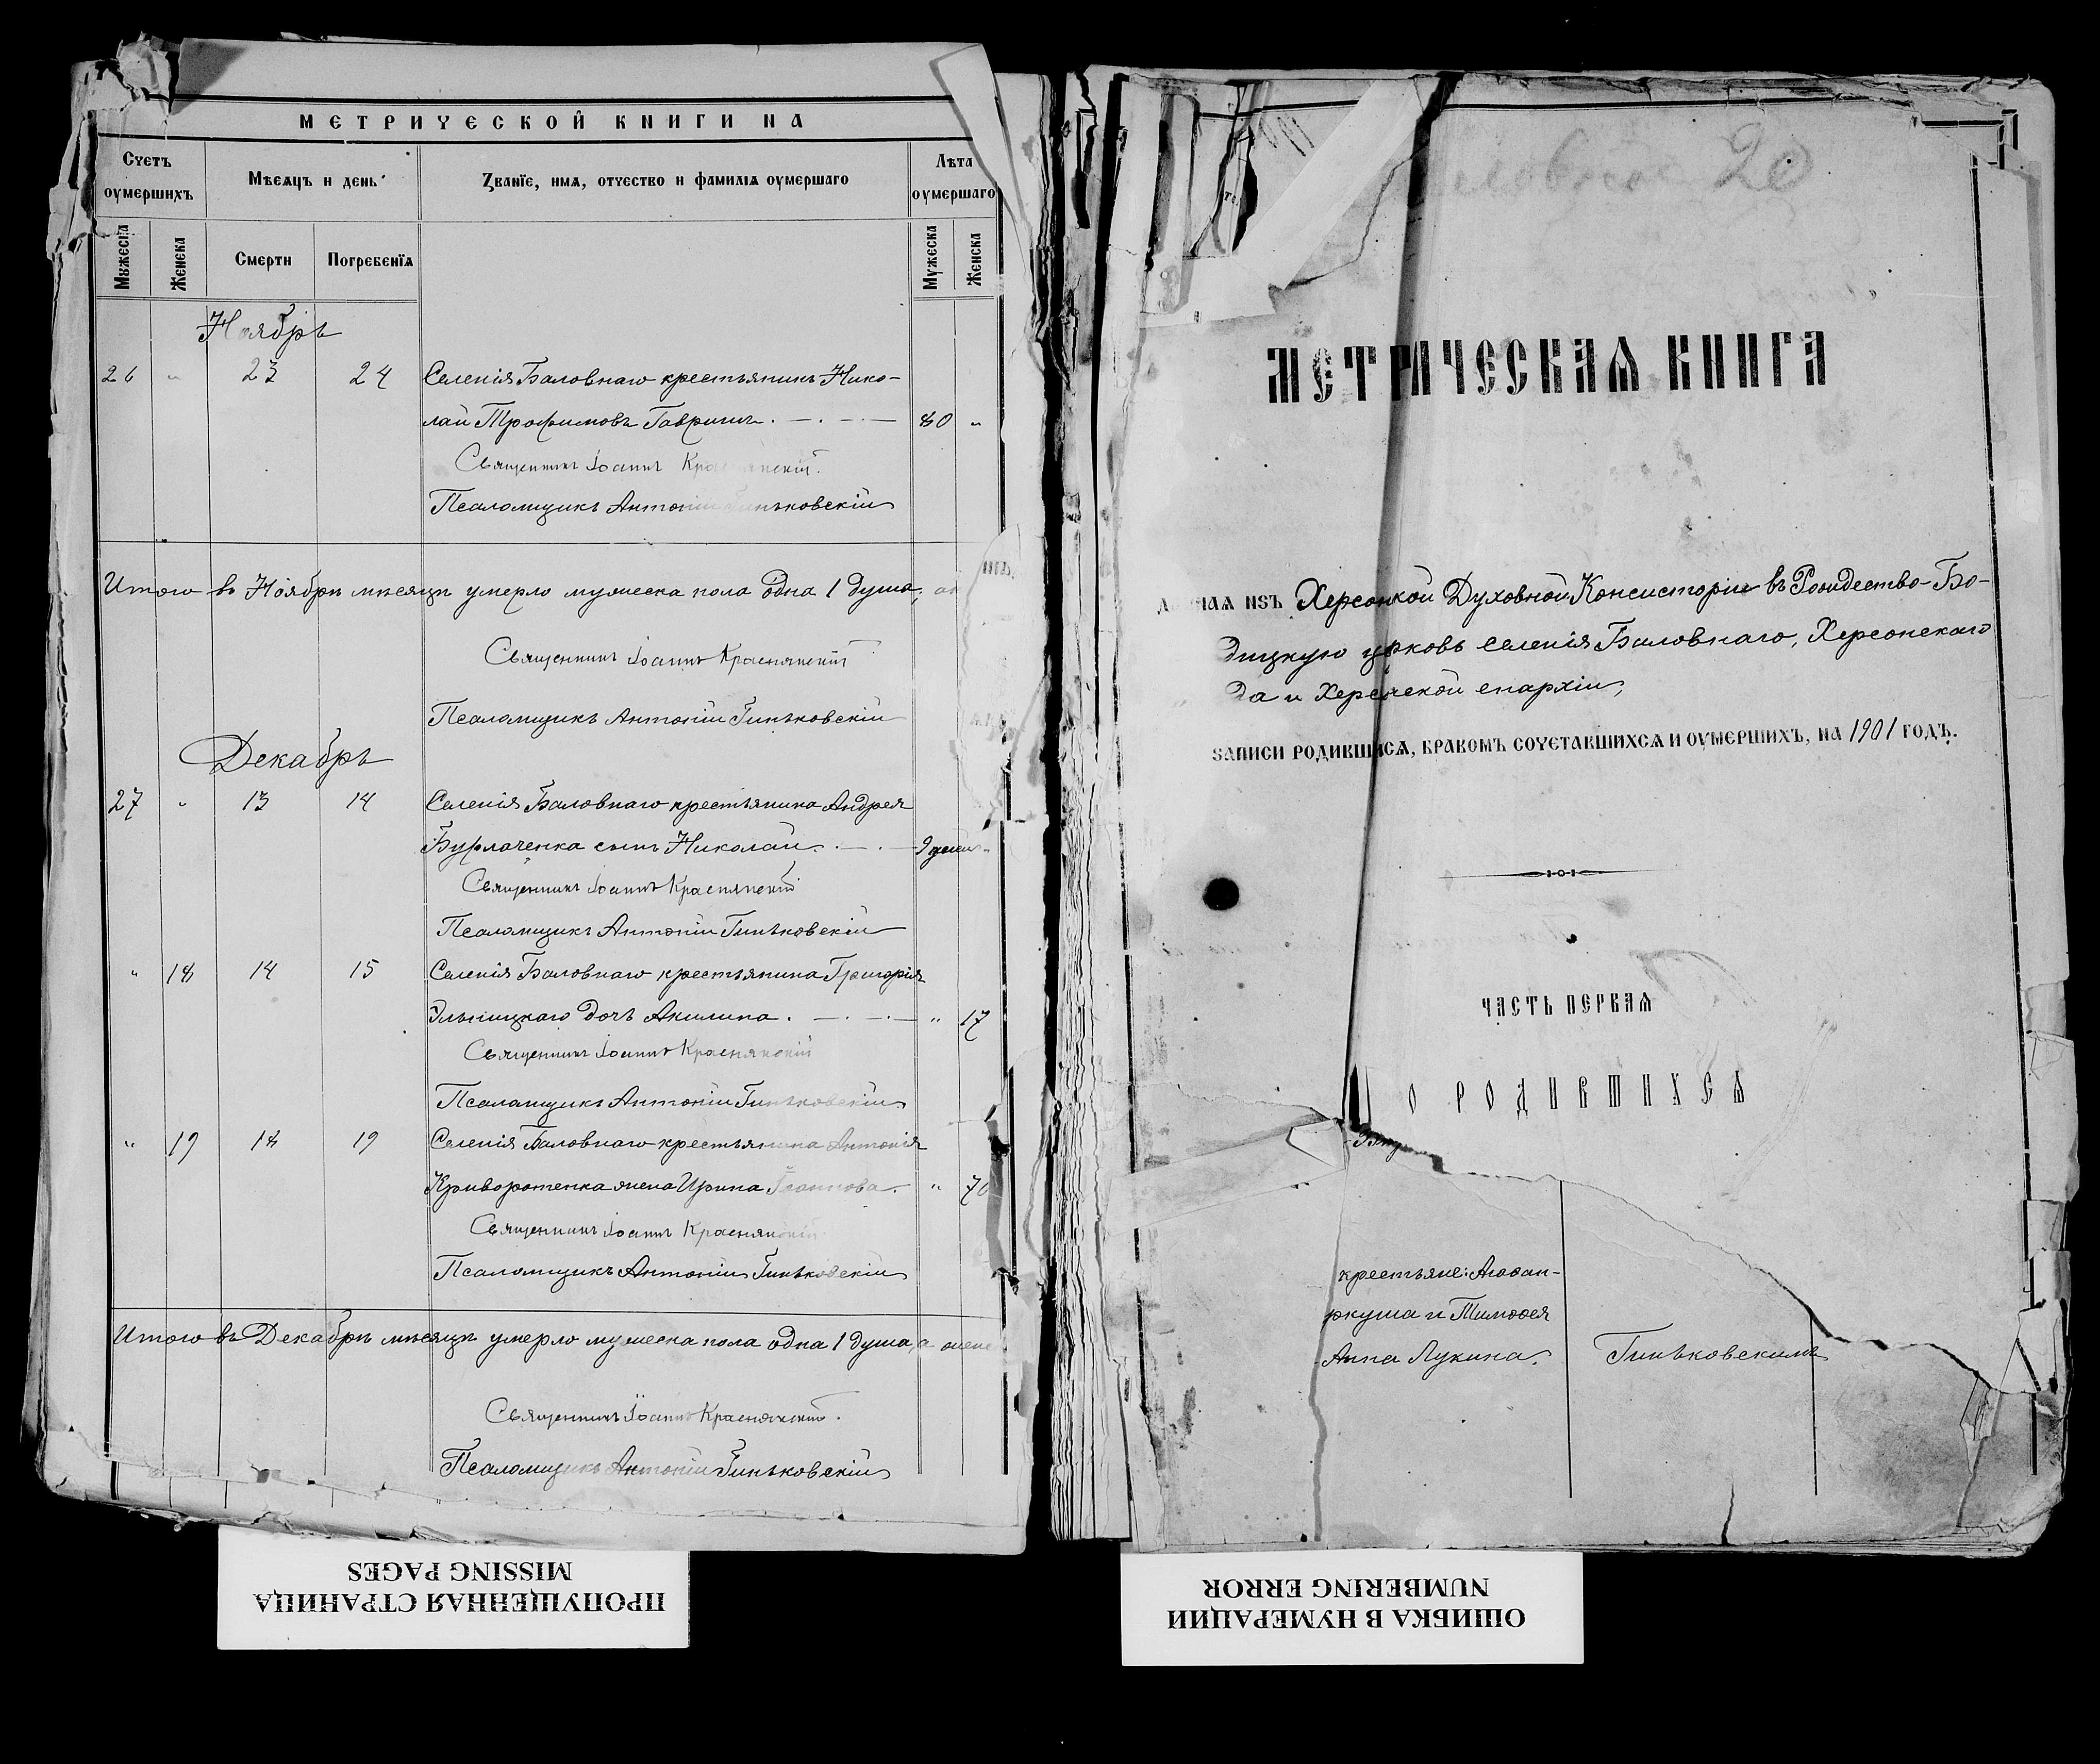 МЕТРИЧЕСКОЙ КНИГИ НА
Счетъ оумершихъ
Мѣсѧцъ и день
Званїе, имѧ, отчество и фамилїѧ оумершаго
Лѣта оумершаго
Мужеска
Женска
Смерти
Погребенїѧ
Мужеска
Женска
Ноябрь
26 " 23 24 Селенія Баловнаго крестьянинъ Нико-
лай Трофимовъ Гавришъ. 80 "
Священникъ Іоаннъ Краснянскій.
Псаломщикъ Антоній Гиньковскій
Итого въ Ноябрѣ мѣсяцѣ умерло мужеска пола одна 1 душа,
Священникъ Іоаннъ Краснянскій
Псаломщикъ Антоній Гиньковскій
Декабрь
27 " 13 14 Селенія Баловнаго крестьянина Андрея
Бурлаченка сынъ Николай. 9 дней "
Священникъ Іоаннъ Краснянскій
Псаломщикъ Антоній Гиньковскій
" 18 14 15 Селенія Баловнаго крестьянина Григорія
Ильницкаго дочь Акилина. " 17
Священникъ Іоаннъ Краснянскій
Псаломщикъ Антоній Гиньковскій
" 19 18 19 Селенія Баловнаго крестьянина Антонія
Криворотенка жена Ирина Іоаннова. " 70
Священникъ Іоаннъ Краснянскій
Псаломщикъ Антоній Гиньковскій
Итого въ Декабрѣ мѣсяцѣ умерло мужеска пола одна 1 душа, а женс
Священникъ Іоаннъ Краснянскій.
Псаломщикъ Антоній Гиньковскій
ПРОПУЩЕННАЯ СТРАНИЦА
MISSING PAGES
20
МЕТРИЧЕСКАѦ КНИГА
наѧ изъ Херсонкой Духовной Консисторіи въ Рождество-Бо-
дицкую церковь селенія Баловнаго, Херсонскаго
да и Херсонской епархіи,
записи родившисѧ, бракомъ сочетавшихсѧ и оумершихъ, на 1901 годъ.
ЧАСТЬ ПЕРВАѦ
О РОДИВШИХСѦ
крестьяне: Агафан-
ркуша и Тимофея
Анна Лукина.
Гиньковскимъ
ОШИБКА В НУМЕРАЦИИ
NUMBERING ERROR